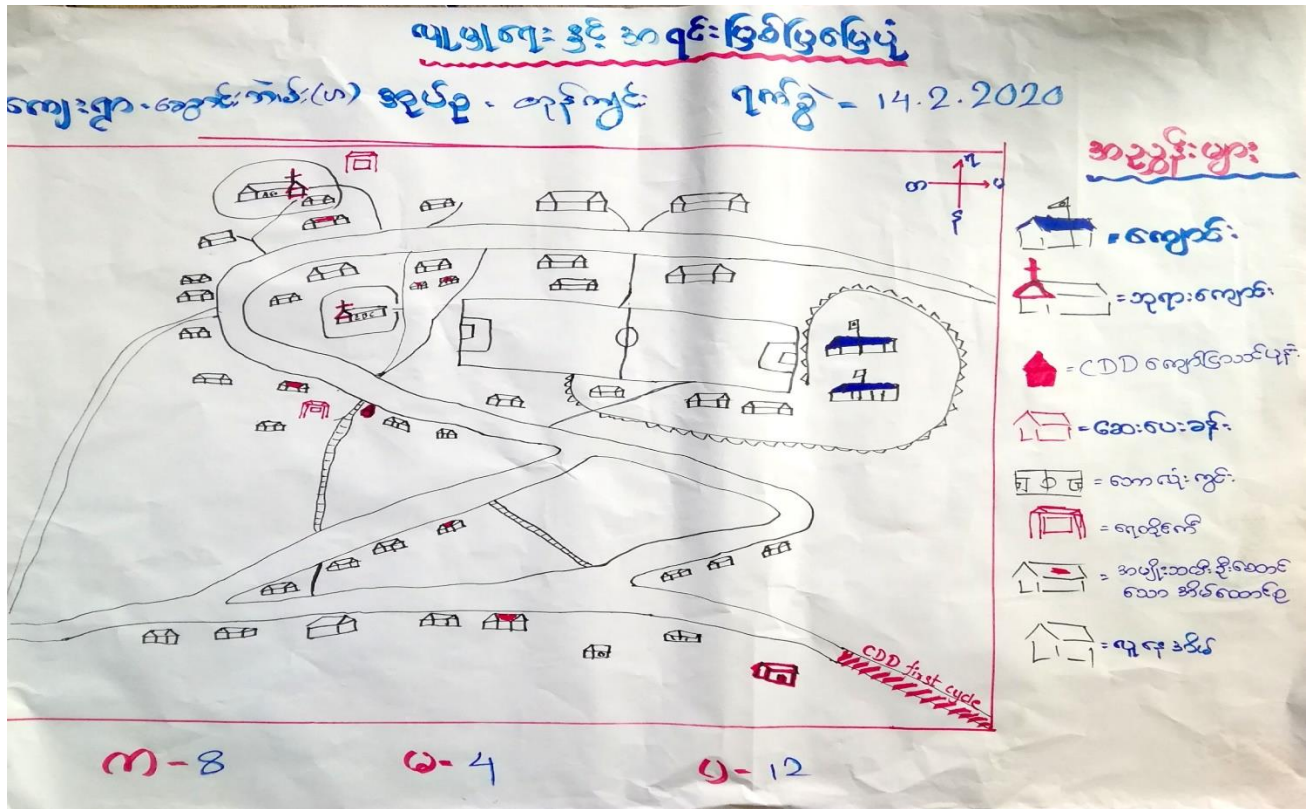 လူမှုရေး နှင့် အရင်းမြစ်ပြမြေပုံ
ကျေးရွာ - အုပ်စု - တုန်ကျင်း ရက်စွဲ = 14.2.2020
အညွှန်းများ
မ
တ
န
= ကျောင်း
= ဘုရားကျောင်း
= CDD
= ဆေးပေးခန်း
= ဘောလုံးကွင်း
= ရေတိုင်ကီ
= အမျိုးသမီးဦးဆောင်
သော အိမ်ထောင်စု
= လူနေအိမ်
AG
LBC
CDD first cycle
က - 8 မ - 4 ပ - 12